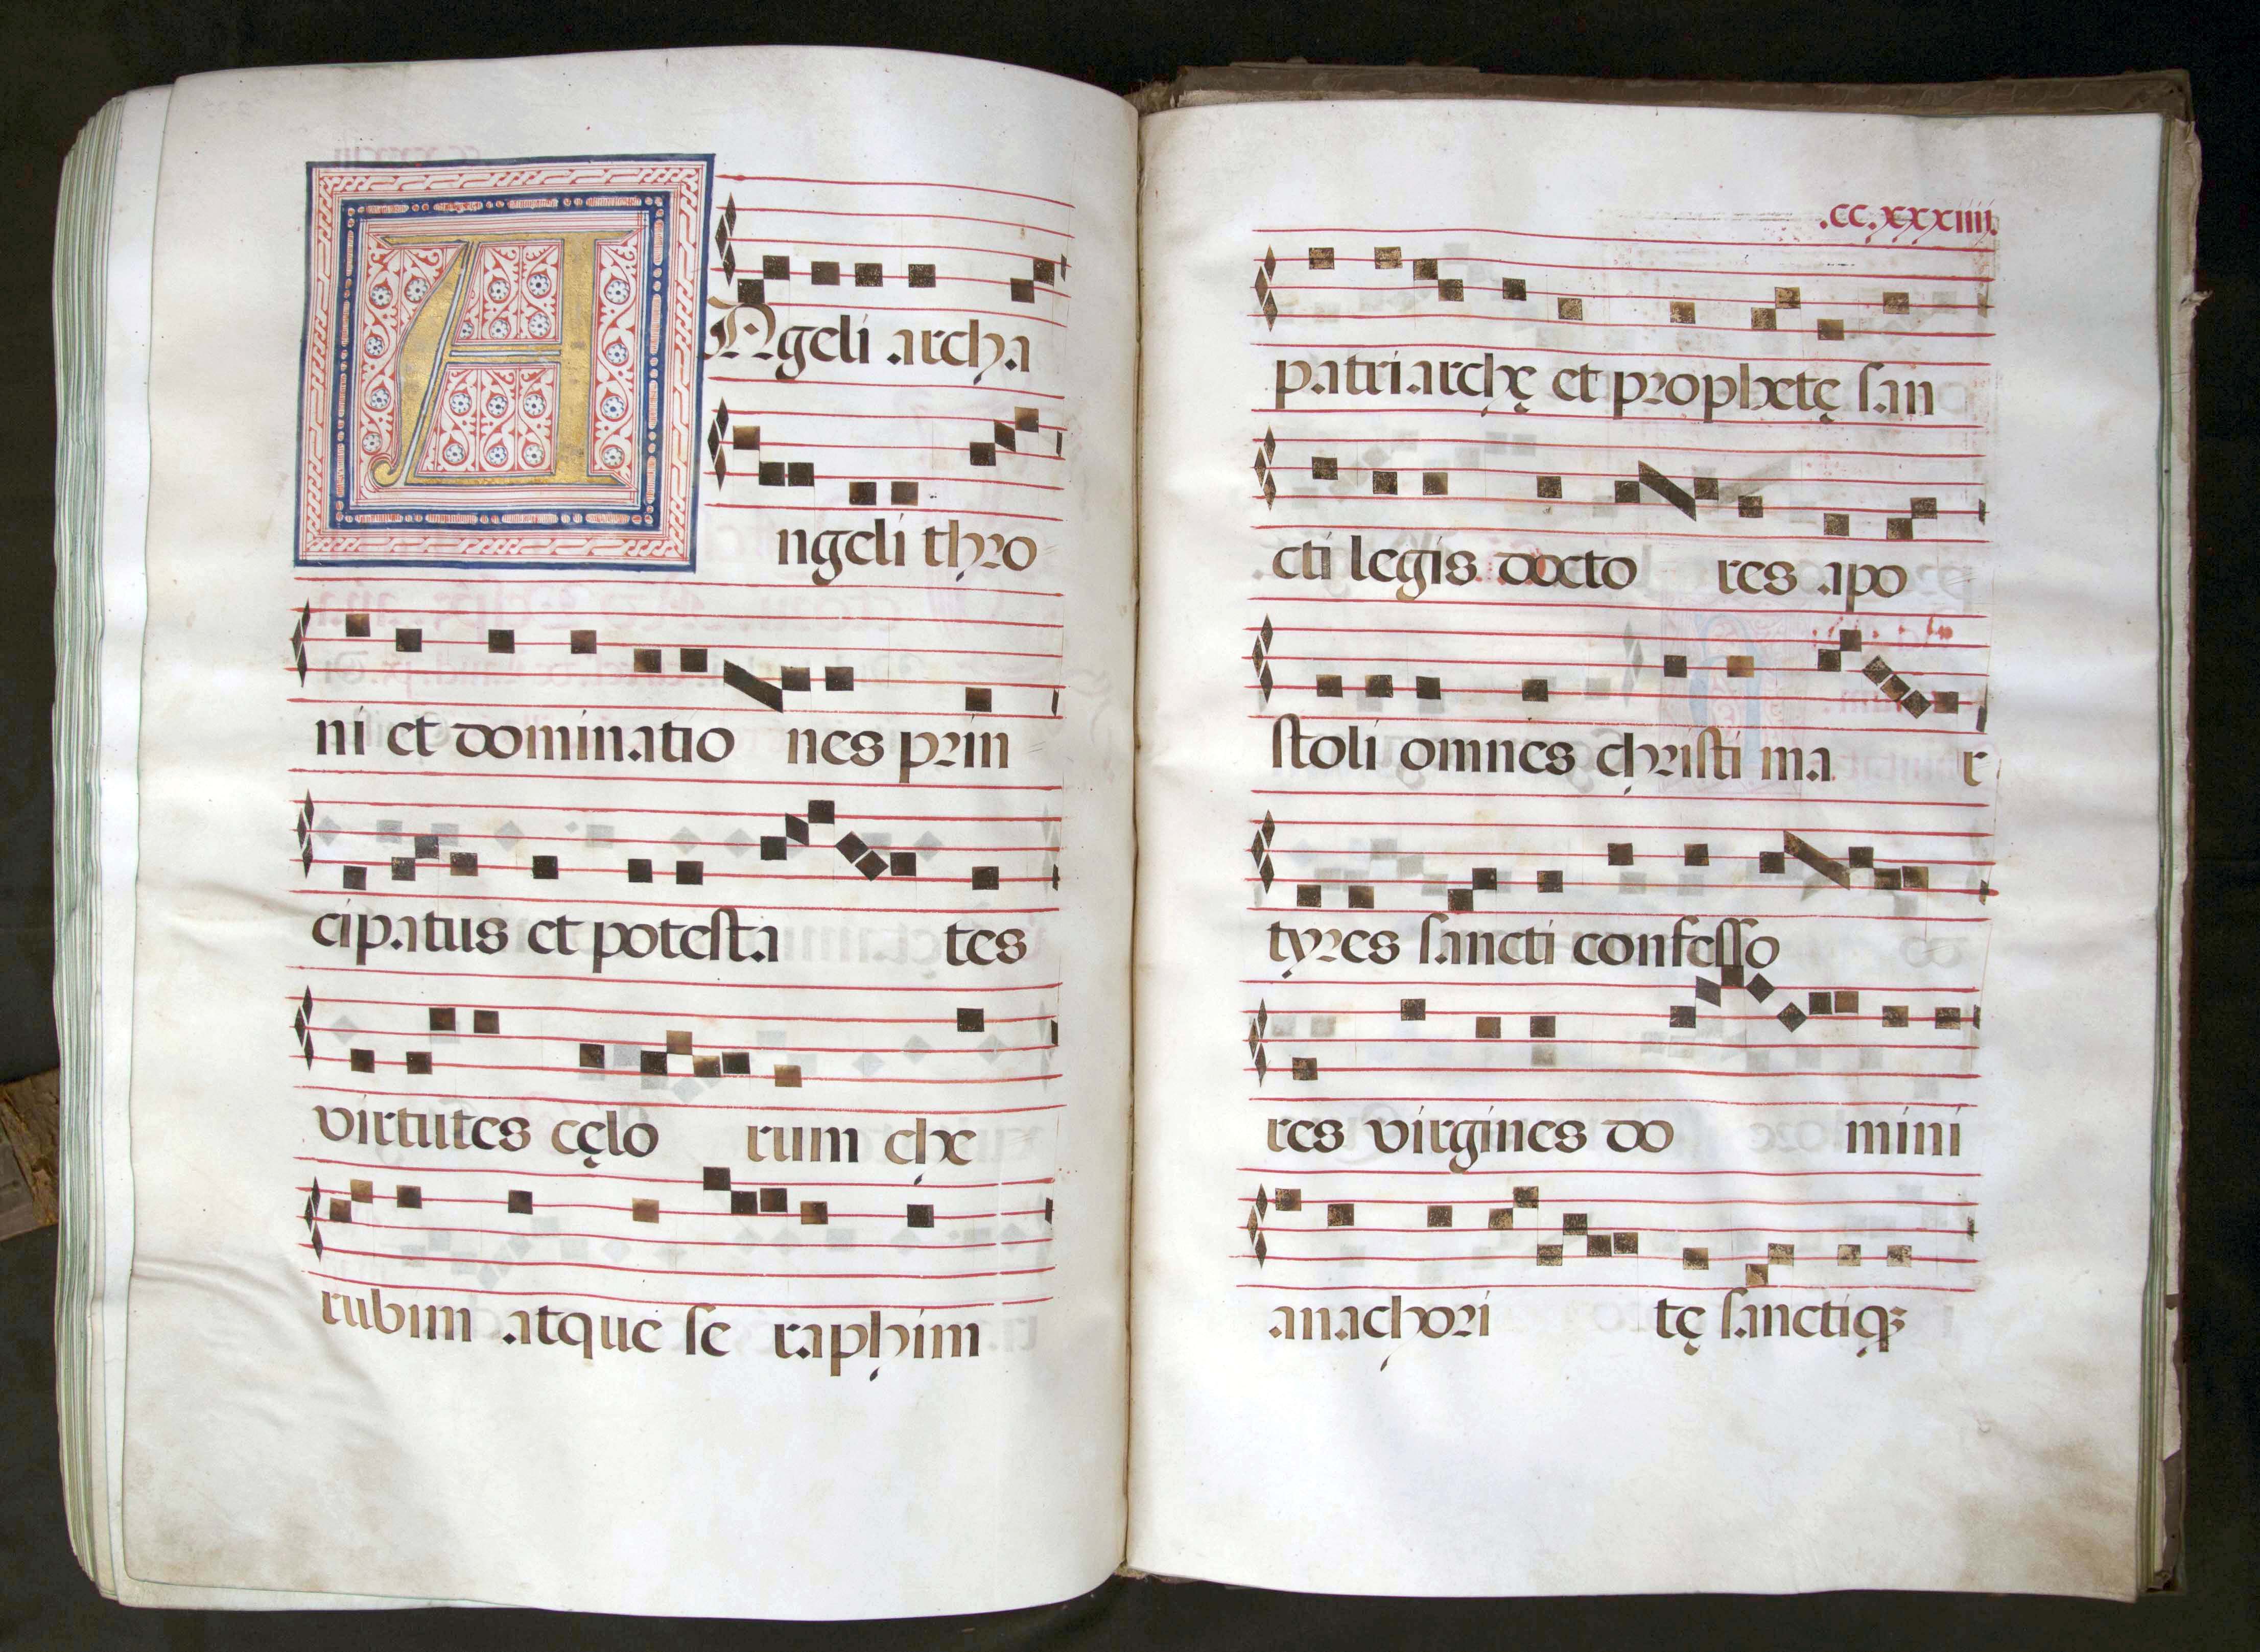 A
Angeli archa
ngeli thro
ni et dominatio nes prin
cipatus et potesta tes
virtutes cęlo rum che
rubim atque se raphim
.cc.xxxiiii.
patriarchę et prophetę san
cti legis docto res apo
stoli omnes christi ma r
tyres sancti confesso
res virgines do mini
anachori tę sanctiqꝫ